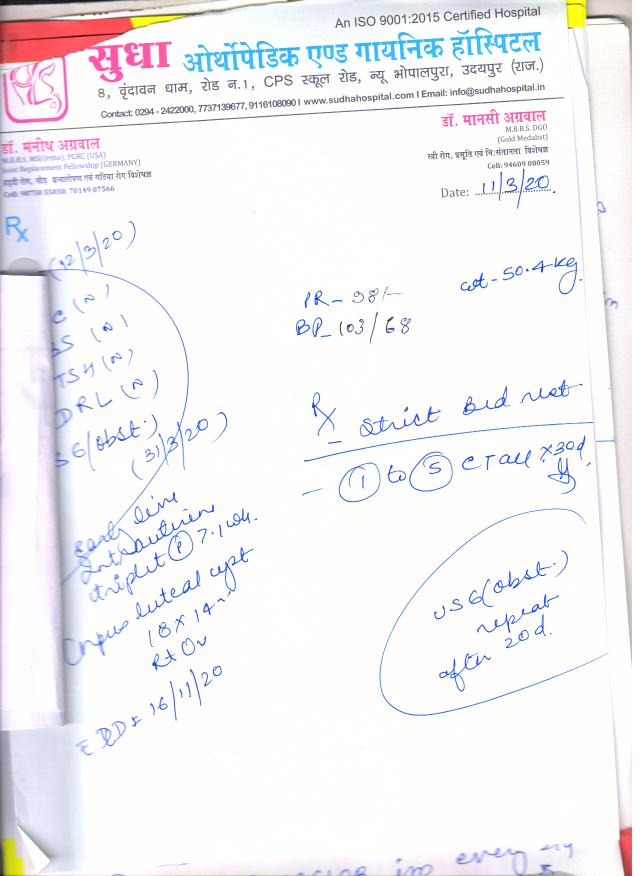 An ISO 9001:2015 Certified Hospital
सुधा ओर्थोपेडिक एण्ड गायनिक हॉस्पिटल
8, वृंदावन धाम, रोड न.1, CPS स्कूल रोड, न्यू भोपालपुरा, उदयपुर (राज.)
Contact: 0294 - 2422000, 7737139677, 9116108090 I www.sudhahospital.com I Email: info@sudhahospital.in
डॉ. मनीष अग्रवाल
M.B.B.S. MS(Ortho), PGRC (USA)
Joint Replacement Fellowship (GERMANY)
हड्डी रोग, जोड़ प्रत्यारोपण एवं गठिया रोग विशेषज्ञ
Cell: 98750 55030, 70149 07566
डॉ. मानसी अग्रवाल
M.B.B.S. DGO
(Gold Medalist)
स्त्री रोग, प्रसूति एवं नि:संतानता विशेषज्ञ
Cell: 94609 08059
Date: 11/3/20
Rx
(12/3/20)
C (N)
BS (N)
TSH (N)
DRL (N)
SG (obst.)
(31/3/20)
early live
intrauterine
triplet (P) 7.1 wk.
Corpus luteal cyst
18 x 14
Rt Ov
EDD = 16/11/20
wt - 50.4 kg.
PR - 98/-
BP - 103/68
Rx
Strict Bed rest
- 1 to 5 CT all x 30d.
USG (obst.)
repeat
after 20d.
every